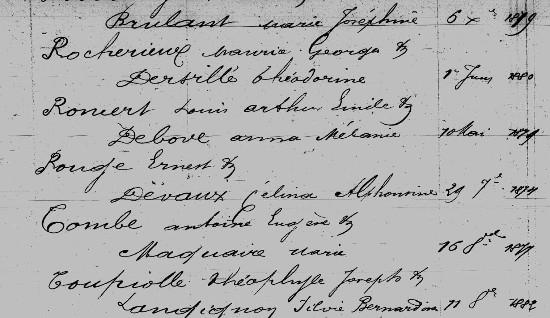 Brulant Marie Joséphine 6 xe 1879
Rocherieux Maurice Georges &
Derville Théodorine 1er Juin 1880
Romert Louis Arthur Emile &
Debove Anna Mélanie 10 Mai 1879
Rouge Ernest &
Dévaux Célina Alphonsine 29 7e 1874
Tombe Antoine Eugère &
Maquaire Marie 16 8re 1877
Toupiolle Théophyle Joseph &
Langignon Silvie Bernardine 11 8e 1882